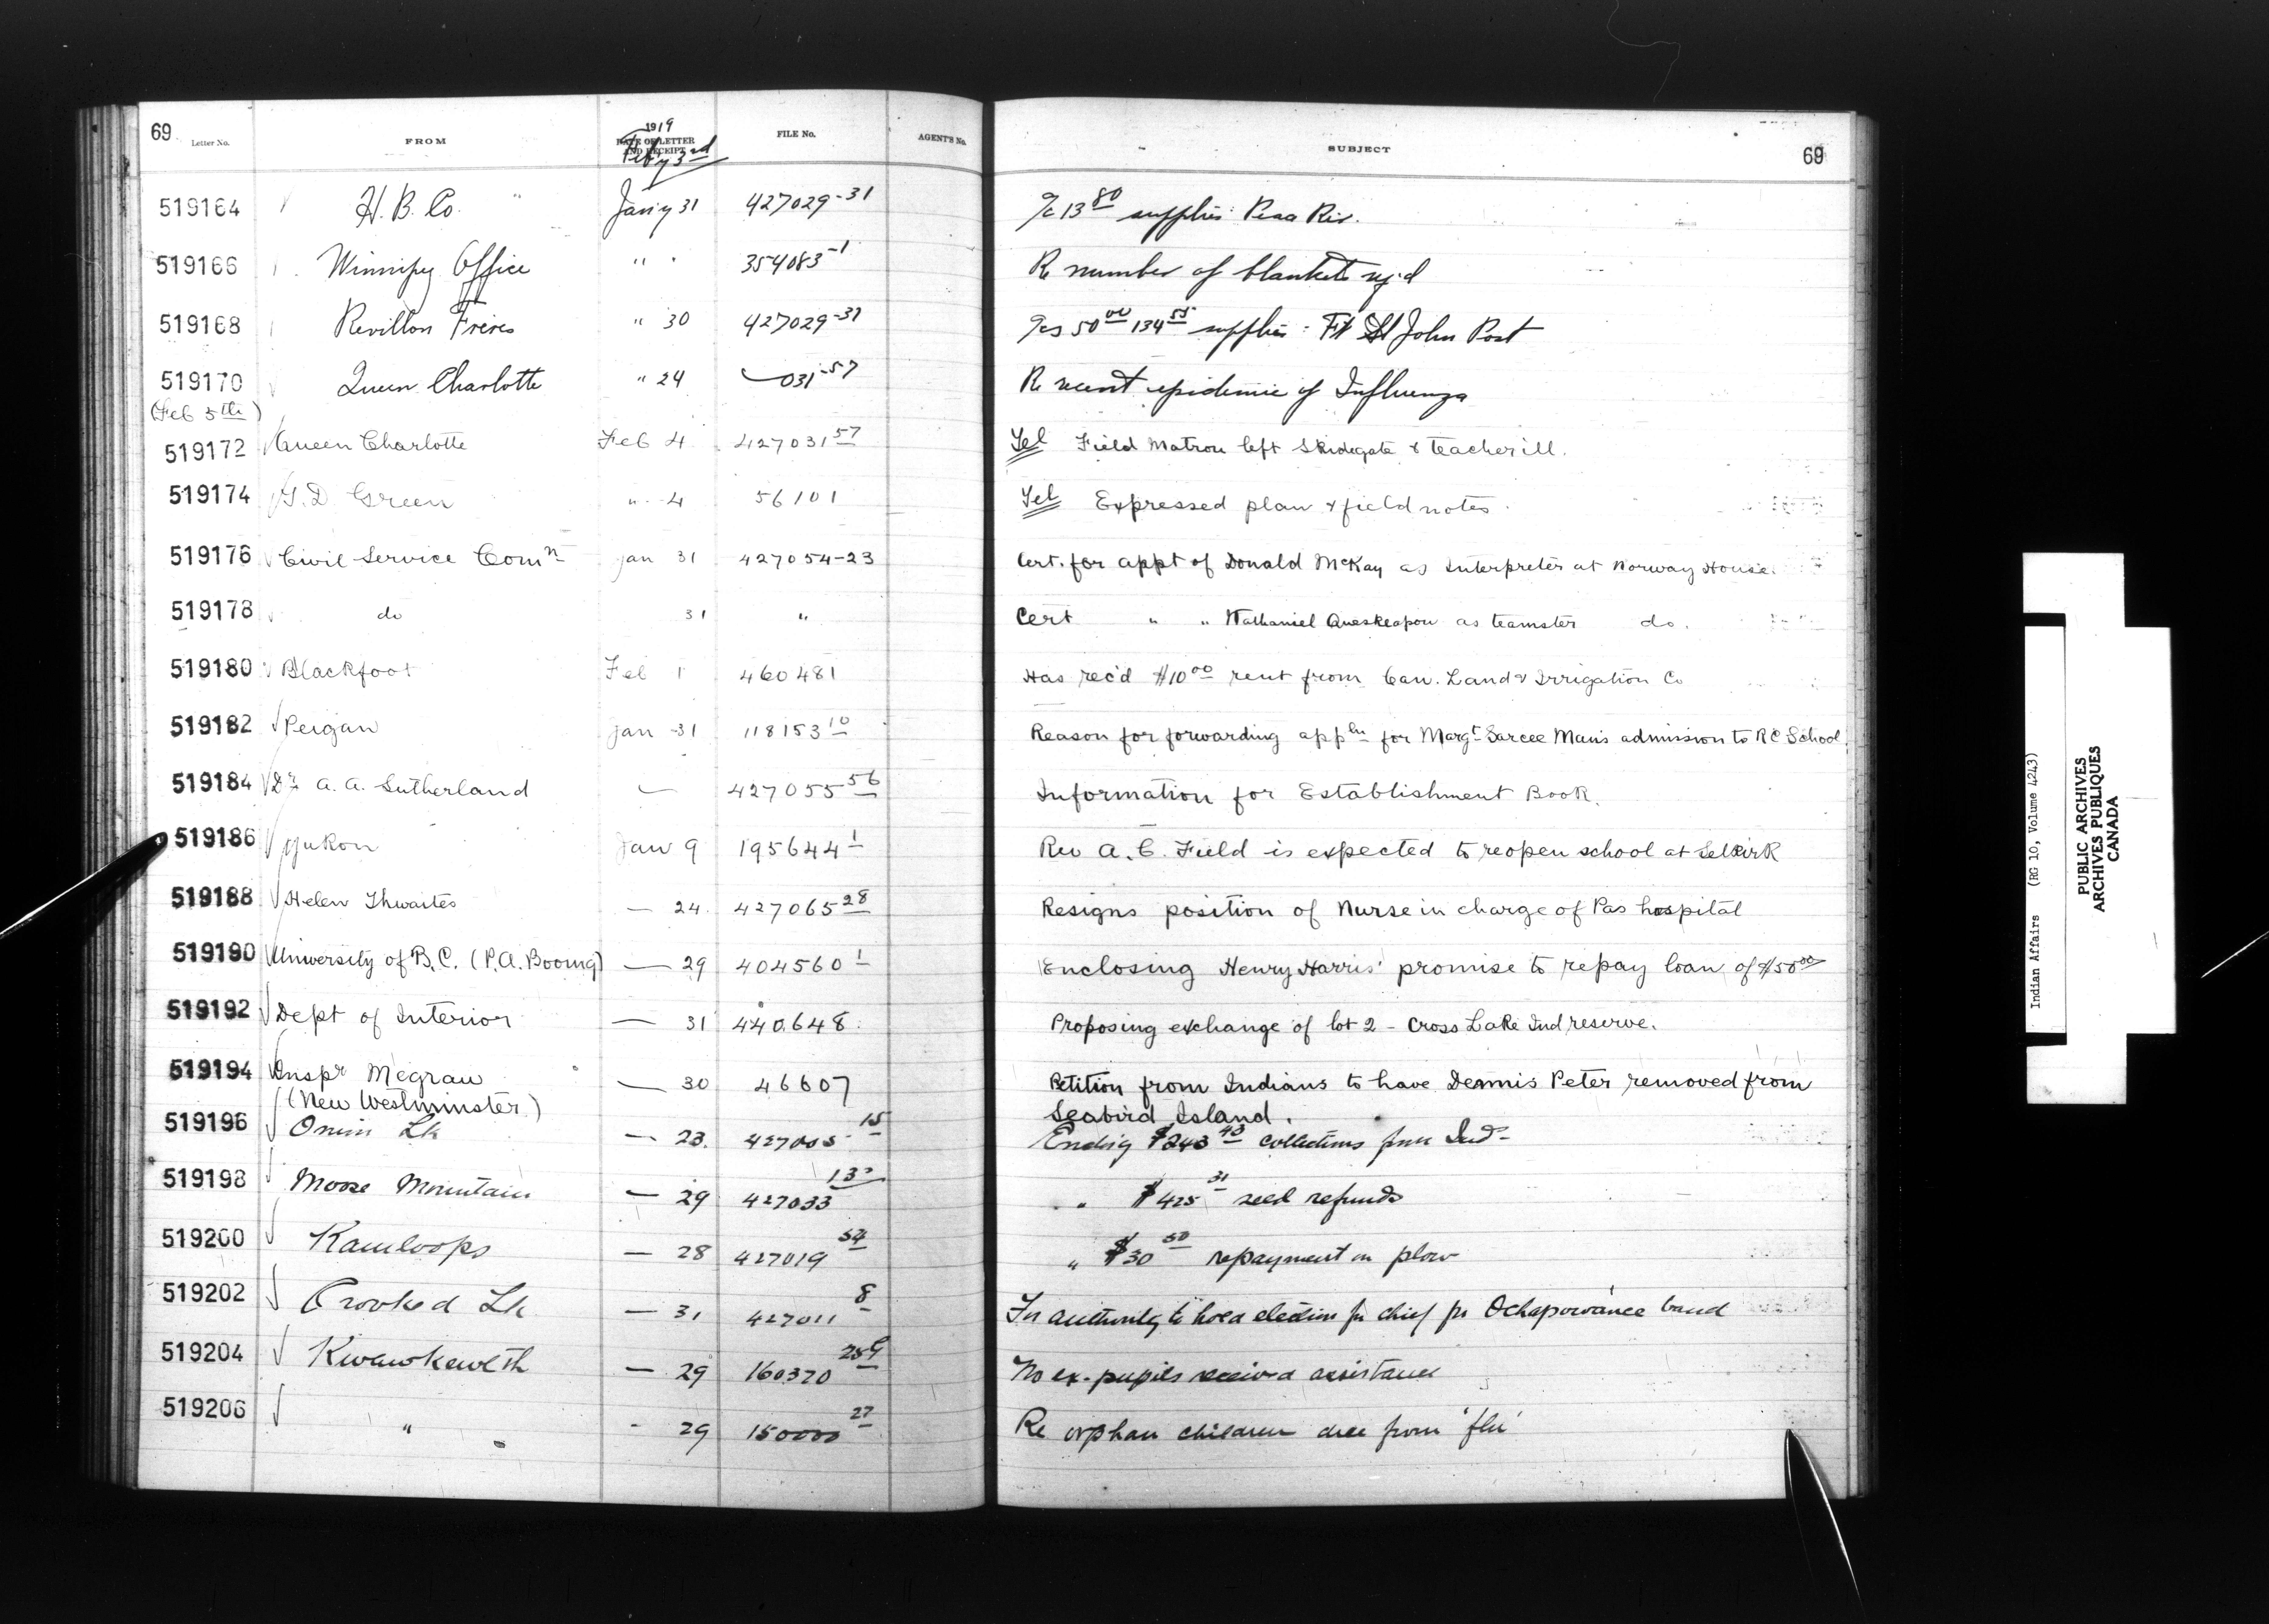 69 Letter No. FROM 1919 DATE OF LETTER AND RECEIPT Feby 3rd FILE No. AGENT'S No. SUBJECT 69
519164 H. B. Co. Jan'y 31 427029-31 a/c 13 80 supplies: Peace Riv.
519166 Winnipeg Office " " 354083-1 Re number of blankets req'd
519168 Revillon Frères " 30 427029-31 a/cs 50 00 134 55 supplies: Ft St John Post
519170 Queen Charlotte " 24 — 031-57 Re recent epidemic of Influenza
(Feb 5th)
519172 Queen Charlotte Feb 4 427031 57 Tel Field Matron left Skidegate & teacher ill.
519174 T. D Green " 4 56101 Tel Expressed plan & field notes.
519176 Civil Service Comn Jan 31 427054-23 Cert. for appt of Donald McKay as Interpreter at Norway House.
519178 do 31 " Cert " " Nathaniel Queskeapow as teamster do.
519180 Blackfoot Feb 1 460481 Has rec'd $10 00 rent from Can. Land & Irrigation Co
519182 Peigan Jan 31 118153 10 Reason for forwarding appln for Margt Sarcee Man's admission to RC School.
519184 Dr. A. A. Sutherland — 427055 56 Information for Establishment Book.
519186 Yukon Jan 9 195644 1 Rev A. C. Field is expected to reopen school at Selkirk
519188 Helen Thwaites — 24 427065 28 Resigns position of Nurse in charge of Pas hospital
519190 University of B.C. (P.A. Booing) — 29 404560 1 Enclosing Henry Harris' promise to repay loan of $50 00
519192 Dept of Interior — 31 440.648 Proposing exchange of lot 2 - Cross Lake Ind reserve.
519194 Inspr Megraw — 30 46607 Petition from Indians to have Dennis Peter removed from
(New Westminster) Seabird Island.
519196 Onion Lk — 23. 427005 15 Encl'g $243 43 collections from Ind-
519198 Moose Mountain — 29 427033 13 " $425 31 seed refunds
519200 Kamloops — 28 427019 54 " $30 50 repayment on plow
519202 Crooked Lk — 31 427011 8 For authority to hold election for chief for Ochapowance band
519204 Kwawkewlth — 29 160370 259 No ex-pupils received assistance
519206 " - 29 150000 27 Re orphan children due from 'flu'
Indian Affairs (RG 10, Volume 4243)
PUBLIC ARCHIVES
ARCHIVES PUBLIQUES
CANADA